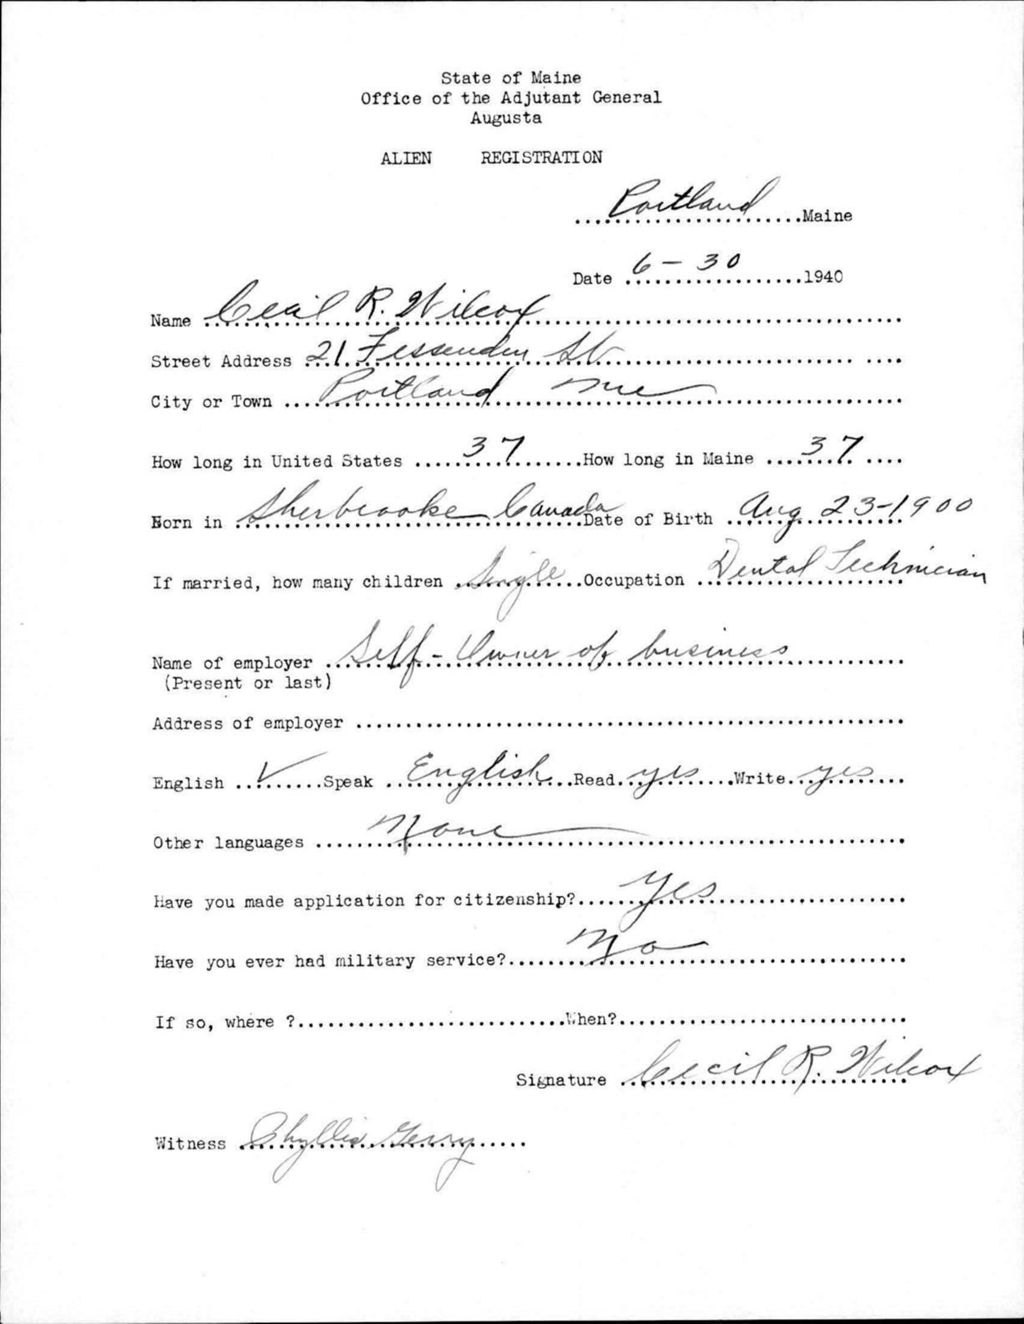 State of Maine
Office of the Adjutant General
Augusta
ALIEN REGISTRATION
Portland Maine
Date 6-30 1940
Name Cecil R. Wilcox
Street Address 21 Fessenden St
City or Town Portland Me
How long in United States 37 How long in Maine 37
Born in Sherbrooke Canada Date of Birth Aug 23-1900
If married, how many children Single Occupation Dental Technician
Name of employer Self-Owner of business
(Present or last)
Address of employer
English ✓ Speak English Read yes Write yes
Other languages None
Have you made application for citizenship? Yes
Have you ever had military service? No
If so, where ? When?
Signature Cecil R. Wilcox
Witness Phyllis Gerry